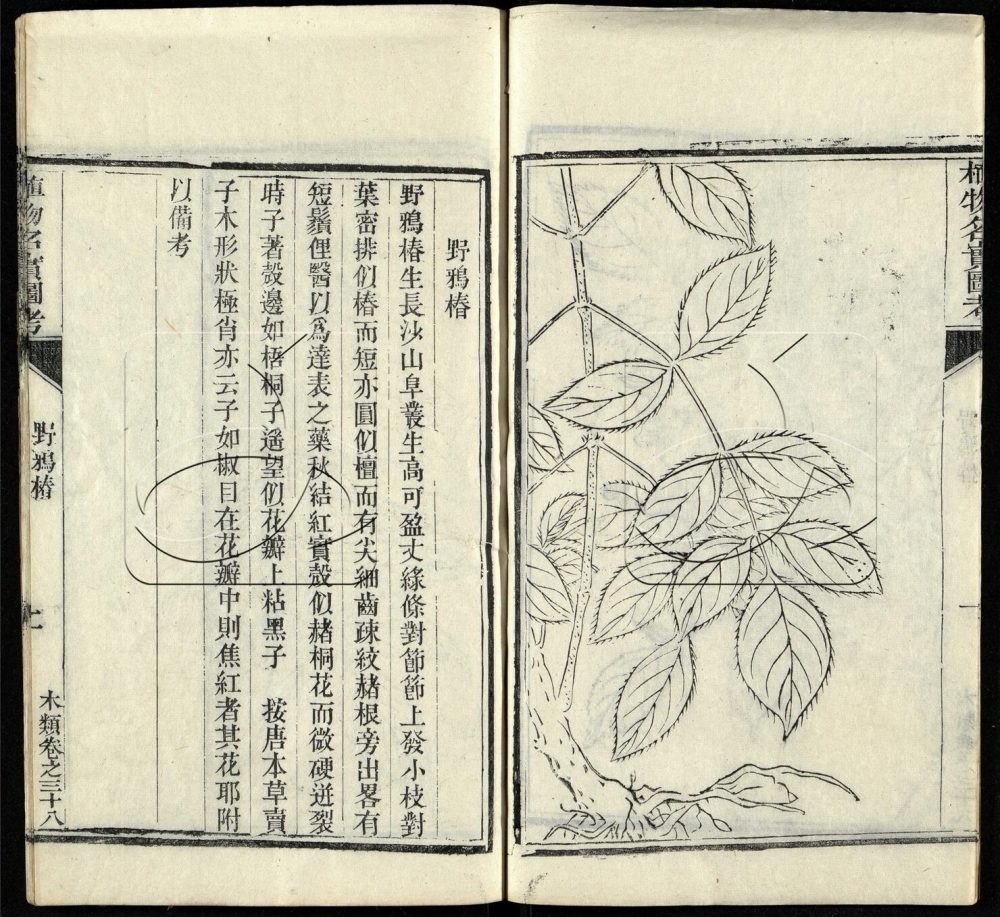 植物名實圖考
野鴉椿
野鴉椿生長沙山阜叢生高可盈丈綠條對節節上發小枝對
葉密排似椿而短亦圓似檀而有尖細齒疎紋赭根旁出畧有
短鬚俚醫以爲達表之藥秋結紅實殼似赭桐花而微硬迸裂
時子著殼邊如梧桐子遙望似花瓣上粘黑子　按唐本草賣
子木形狀極肖亦云子如椒目在花瓣中則焦紅者其花耶附
以備考
植物名實圖考
野鴉椿
木類卷之三十八